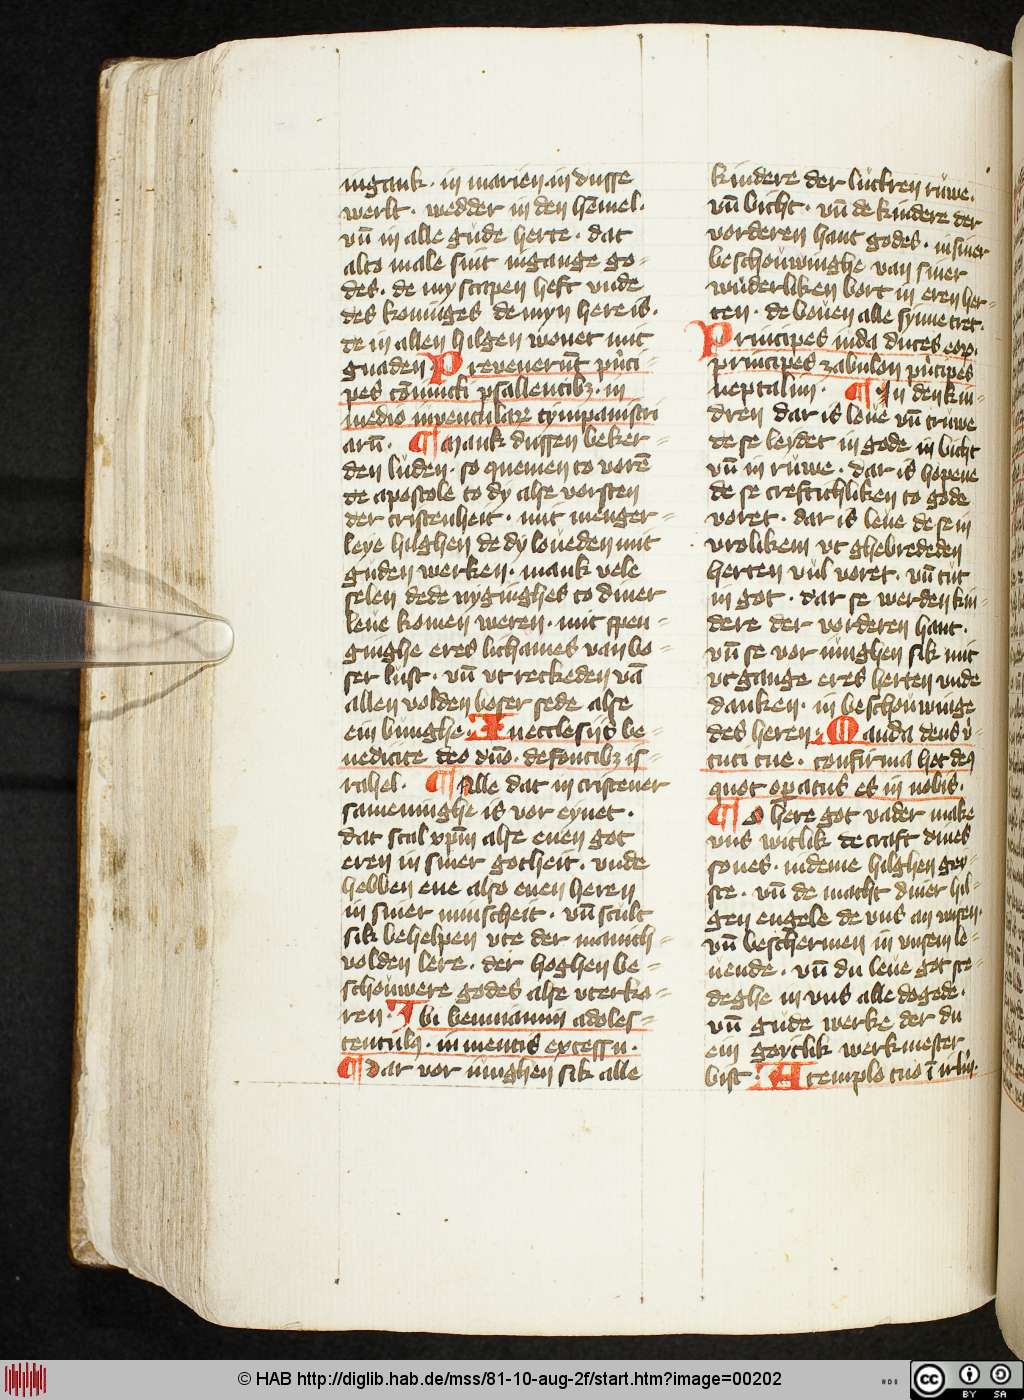 ingank · in marien · in dusse
werlt · wedder in den hēmel ·
vn̄ in alle gude herte · dat
alto male sint ingange go-
des · de my scapen heft vnde
des koninges de myn here is ·
de in allen hilgen wonet mit
gnaden Preuenerūt p̍nci-
pes cōiuncti psallentibꝫ · in
medio iuuenculaꝝ tympanistri
arū · ¶ Mank dussen beker-
den lüden · so quemen to vorē
de apostole to dy alse vorsten
der cristenheit · mit menger-
leye hilghen de dy loueden mit
guden werken · mank vele
selen dede nyginghes to diner
leue komen weren · mit spen-
ginghe eres lichames van bo-
ser lust · vn̄ vt reckeden vā
allen volden boser sede alse
ein bunghe · In ecclesiis be-
nedicite deo dn̄o · de fontibꝫ is-
rahel · ¶ Alle dat in cristener
sameninghe is vor eynet ·
dat scal vpm̄ alse euen got
eren in siner gotheit · vnde
hebben ene also euen heren
in siner minscheit · vn̄ scult
sik behelpen vte der manich-
volden lere · der hoghen be-
schouwere godes alse vterko-
ren · Ibi beniamin adoles-
centulꝰ · in mentis excessu ·
¶ dar vor nüghen sik alle
kindere der luckren rüwe ·
vn̄ bicht · vn̄ de kindere der
vorderen hant godes · in siner
beschouwinghe van siner
wüderliken bort in eren her-
ten · de bouen alle synne tret ·
Principes iuda duces eoꝝ ·
principes zabulon p̍ncipes
neptalim · ¶ In den kin-
dren dar is leue vn̄ truwe
de se leydet in gode in bicht
vn̄ in rüwe · dar is hopene
de se creftichliken to gode
voret · dar is leue de se in
vrolikem vt ghebrededen
herten vul voret · vn̄ tüt
in got · dar se werden kin-
dere der vorderen hant ·
vn̄ se vor nüghen sik mit
vtgange eres herten vnde
danken · in beschouwinge
des heren · Manda deus v̍-
tuti tue · confirma hoc deꝰ
quot opatus es in nobis ·
¶ O here got vader make
vns witlik de craft dines
sones · in deme hilghen gey-
ste · vn̄ de macht diner hil-
gen engele de vns an wisen ·
vn̄ beschermen in vnsem le-
uende · vn̄ du leue got ste-
deghe in vns alle dogede ·
vn̄ gude werke der du
ein gotlik werkmester
bist · A templo tuo ī irl̄m ·
© HAB http://diglib.hab.de/mss/81-10-aug-2f/start.htm?image=00202